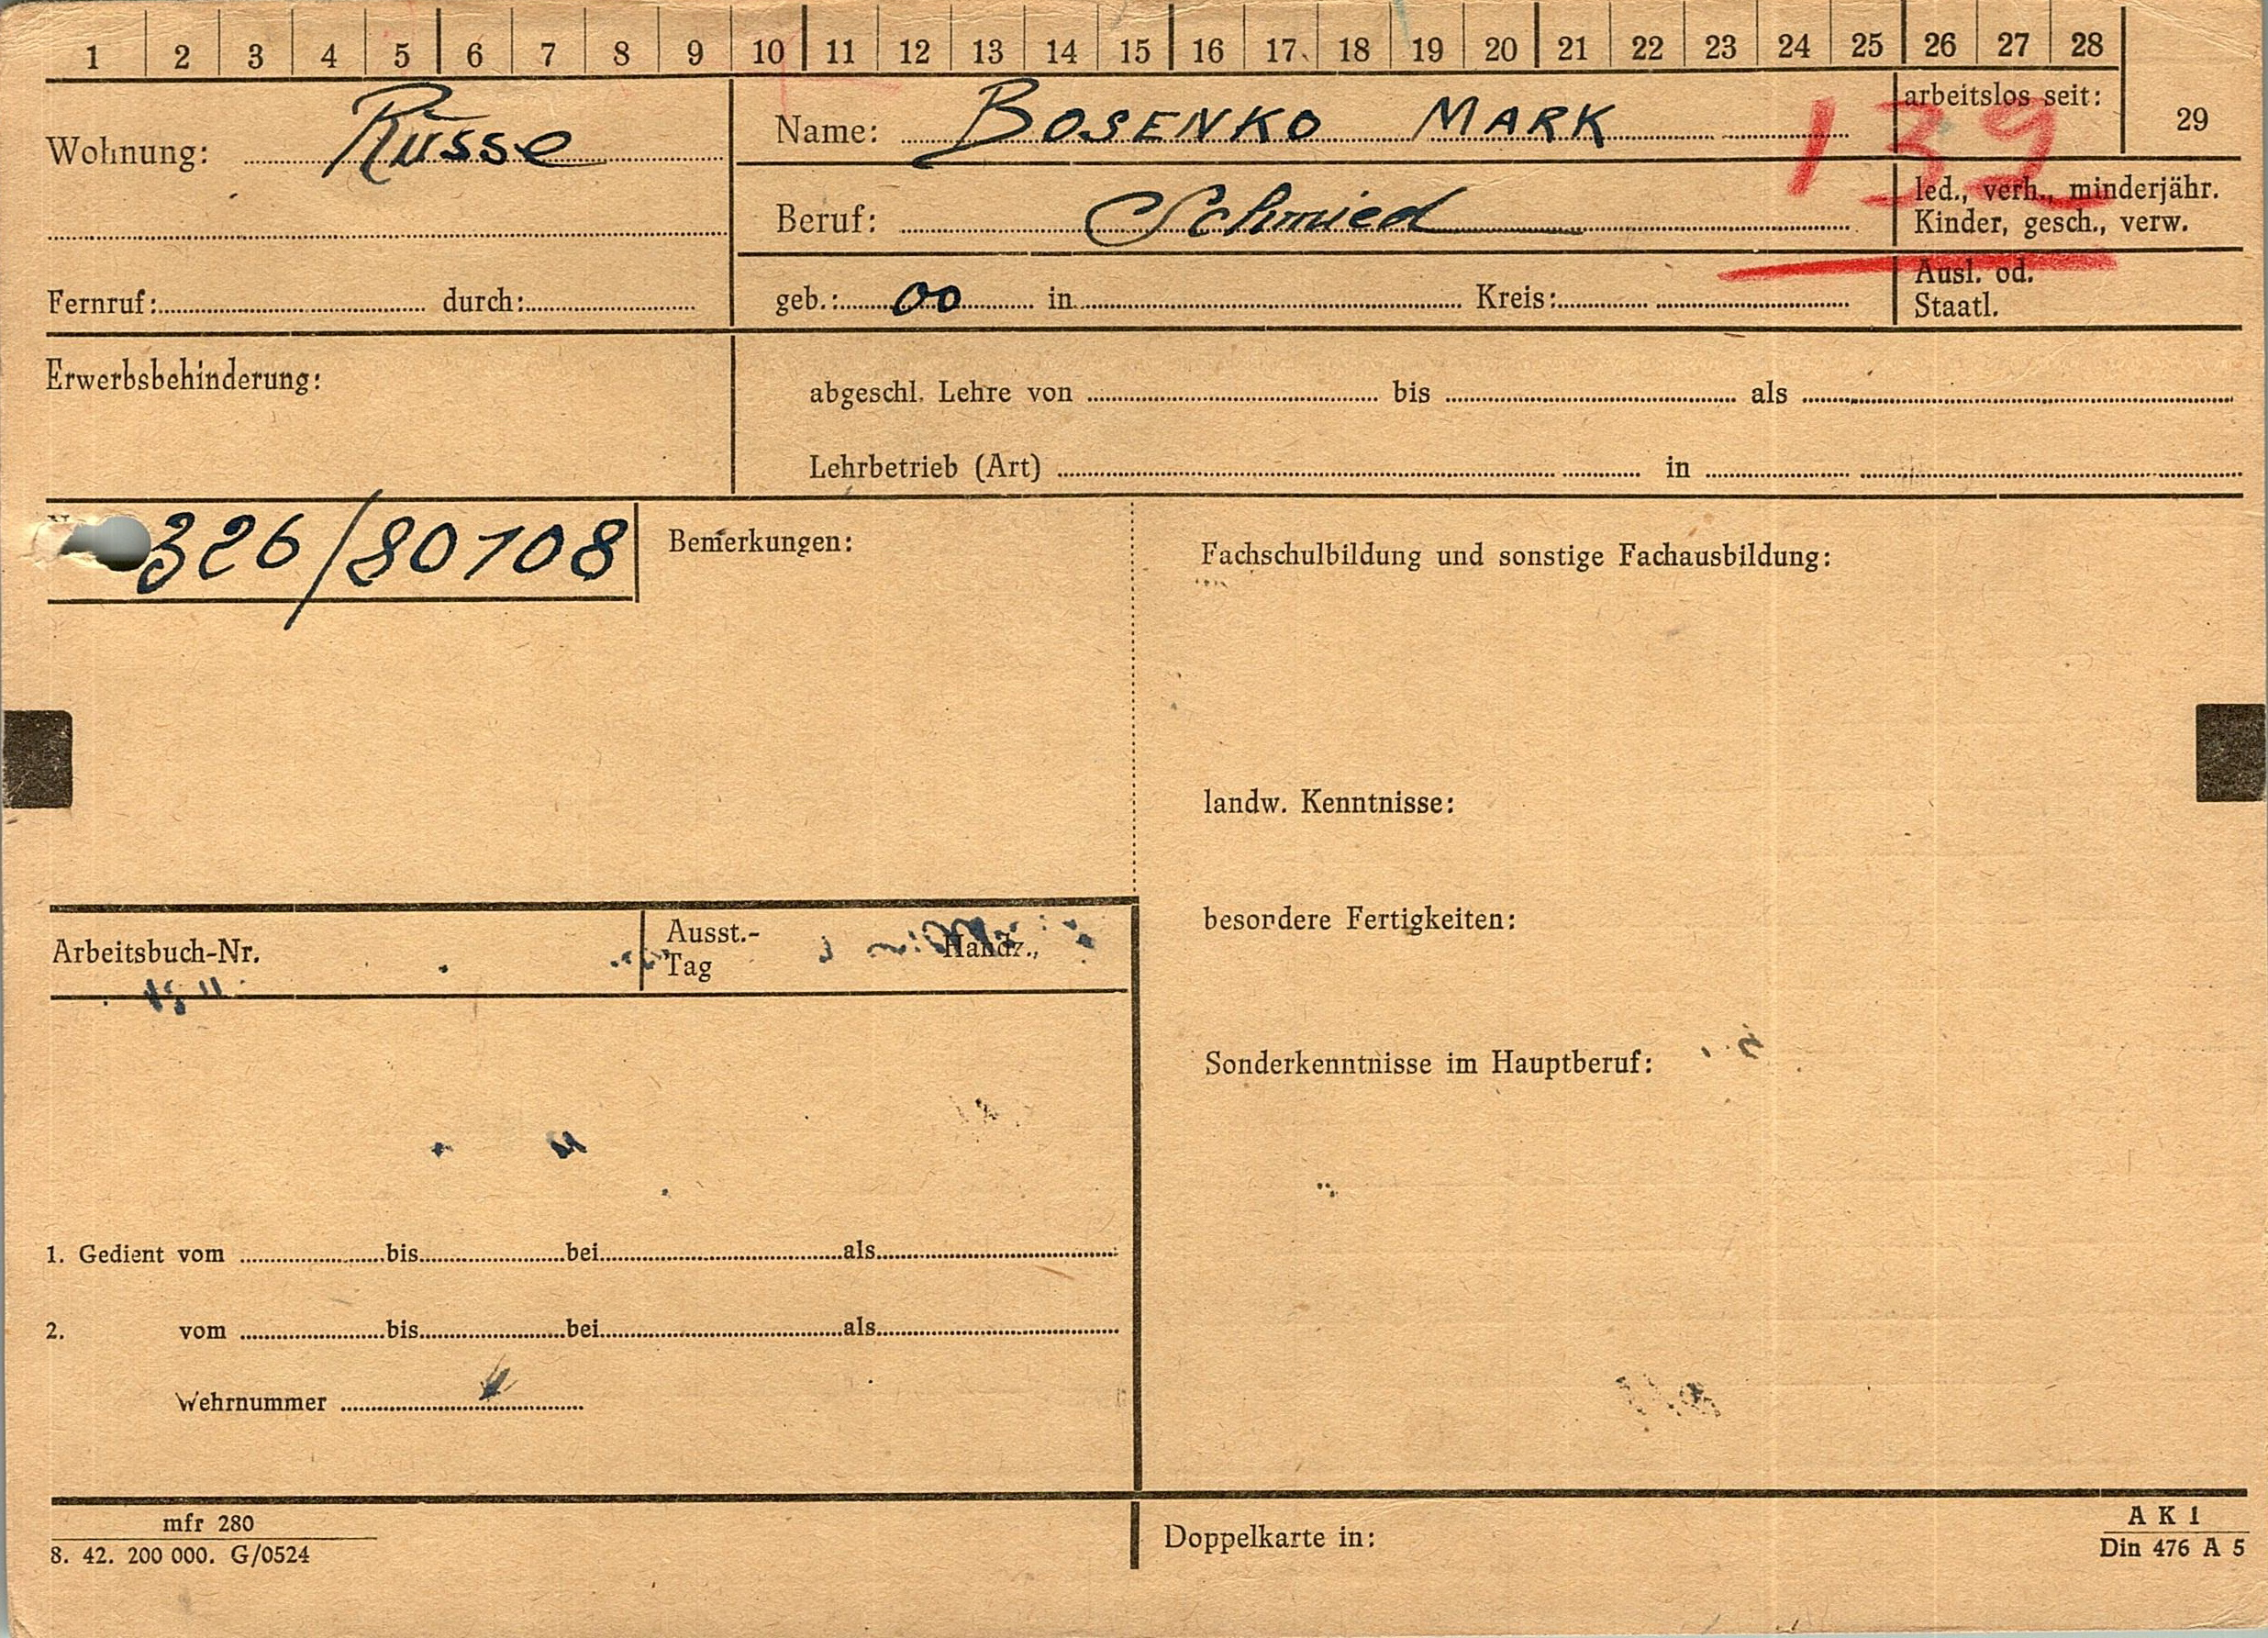 1 2 3 4 5 6 7 8 9 10 11 12 13 14 15 16 17 18 19 20 21 22 23 24 25 26 27 28
29
Wohnung: Russe
Name: BOSENKO MARK
arbeitslos seit:
139
Beruf: Schmied
led., verh., minderjähr.
Kinder, gesch., verw.
Fernruf: durch:
geb.: 00 in Kreis:
Ausl. od.
Staatl.
Erwerbsbehinderung:
abgeschl. Lehre von bis als
Lehrbetrieb (Art) in
326/80108
Bemerkungen:
Fachschulbildung und sonstige Fachausbildung:
landw. Kenntnisse:
besordere Fertigkeiten:
Arbeitsbuch-Nr.
Ausst.-
Tag
Handz.,
Sonderkenntnisse im Hauptberuf:
1. Gedient vom bis bei als
2. vom bis bei als
Wehrnummer
mfr 280
8. 42. 200 000. G/0524
Doppelkarte in:
A K 1
Din 476 A 5